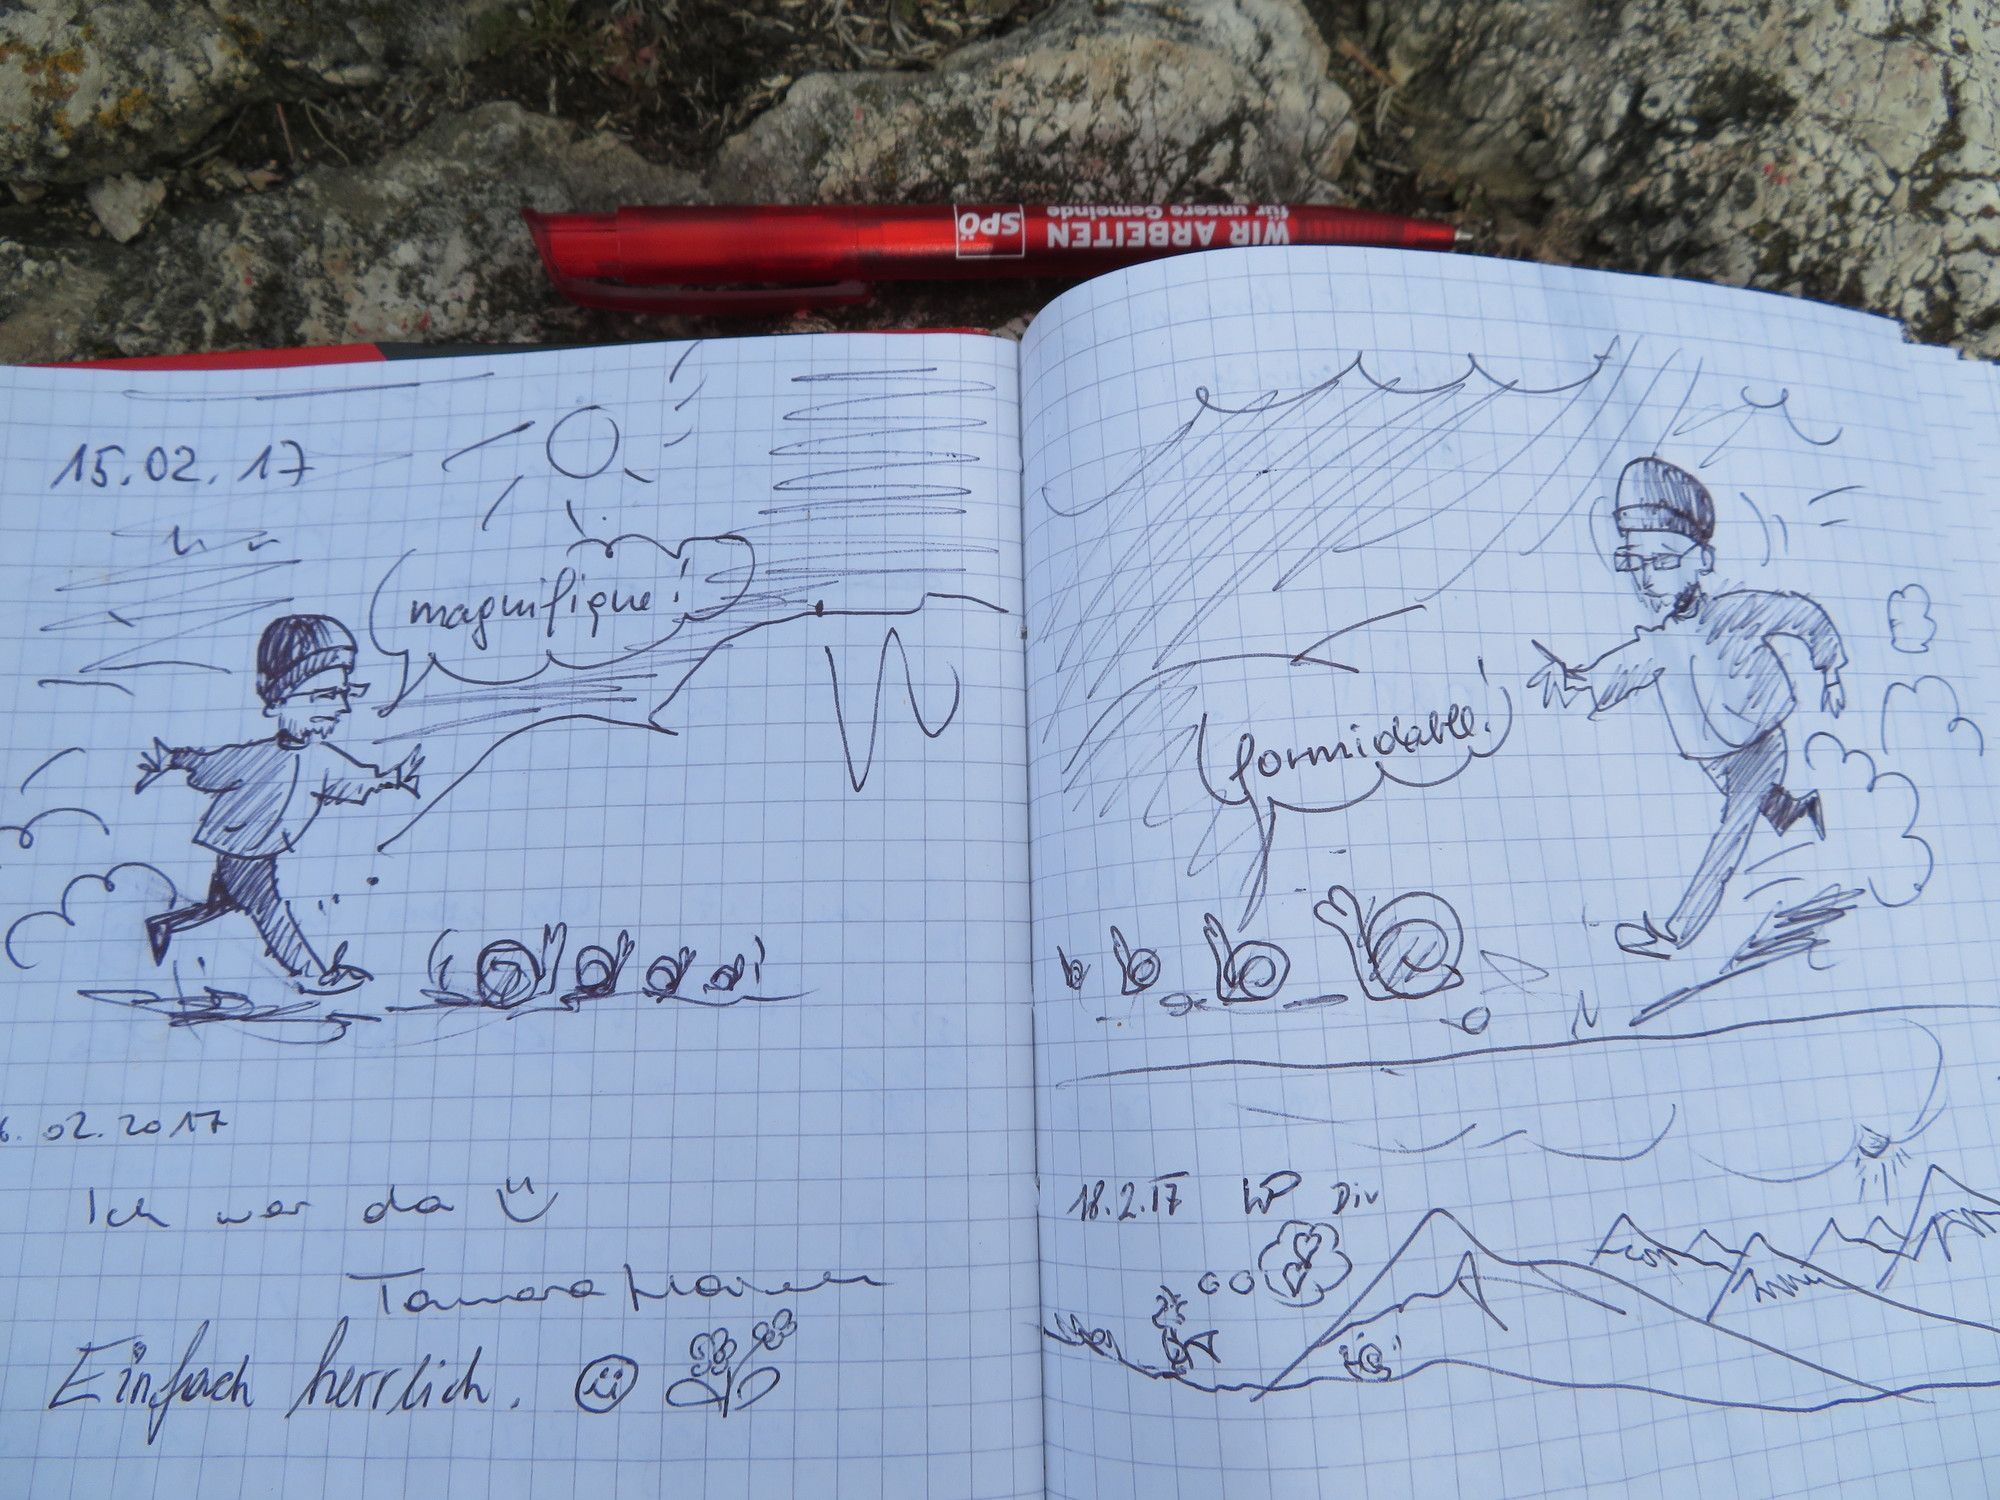 SPÖ
WIR ARBEITEN
für unsere Gemeinde
15.02.17
magnifique!
.02.2017
Ich war da
Tamara
Einfach herrlich.
formidable!
18.2.17